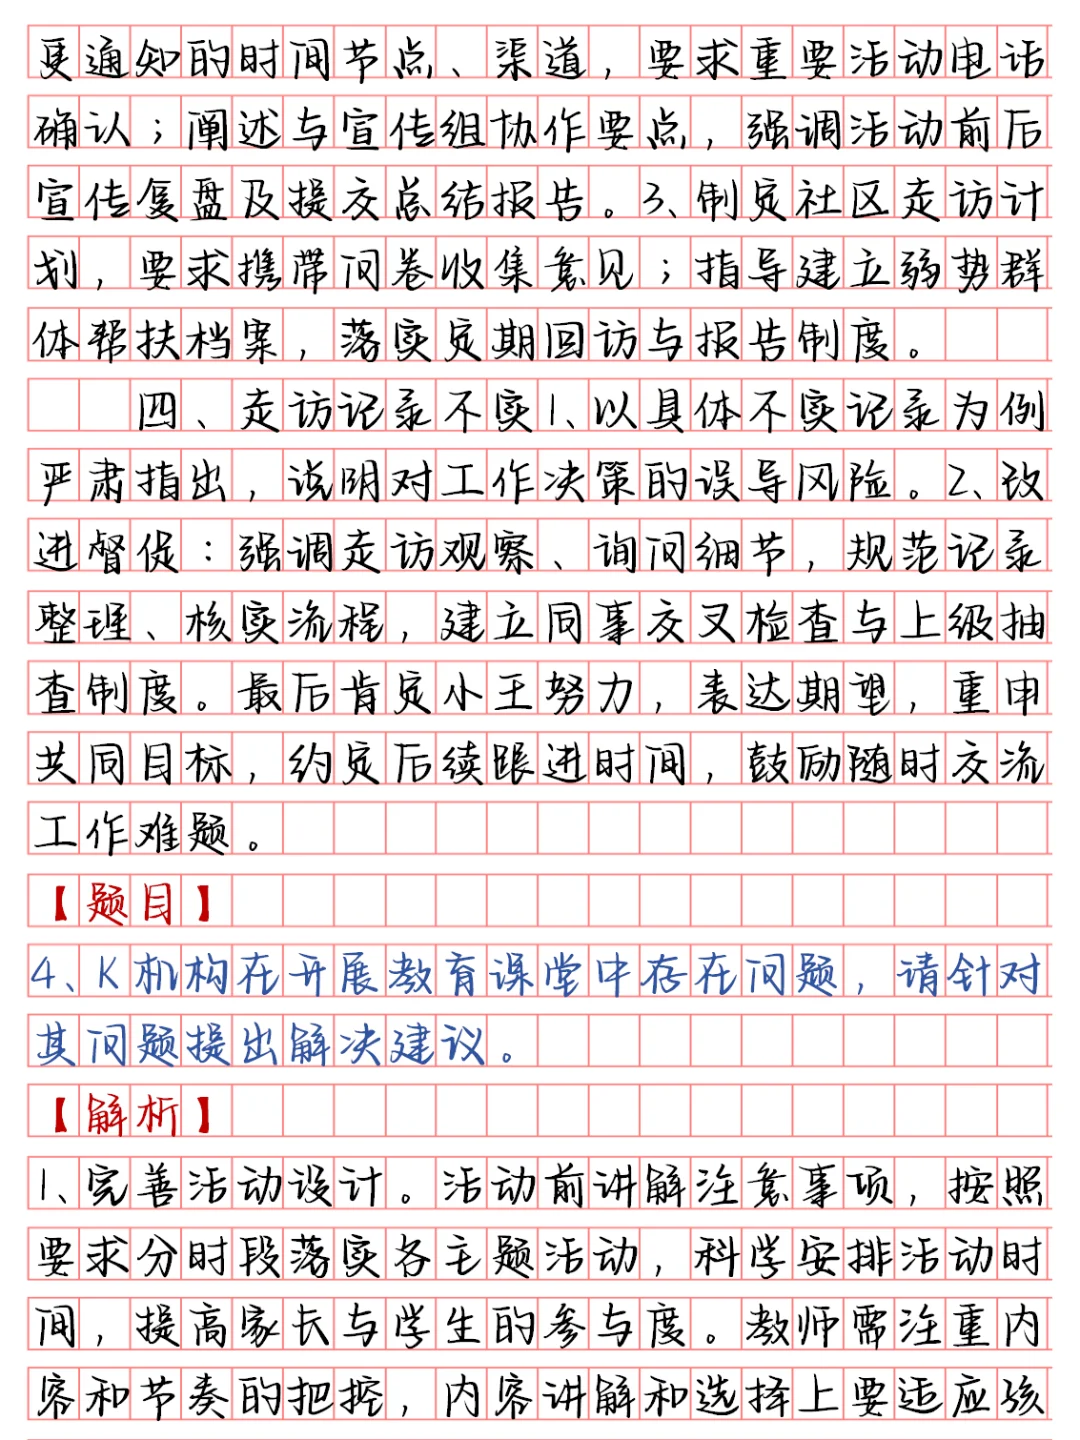 更通知的时间节点、渠道，要求重要活动电话
确认；阐述与宣传组协作要点，强调活动前后
宣传复盘及提交总结报告。3、制定社区走访计
划，要求携带问卷收集意见；指导建立弱势群
体帮扶档案，落实定期回访与报告制度。
四、走访记录不实1、以具体不实记录为例
严肃指出，说明对工作决策的误导风险。2、改
进督促：强调走访观察、询问细节，规范记录
整理、核实流程，建立同事交叉检查与上级抽
查制度。最后肯定小王努力，表达期望，重申
共同目标，约定后续跟进时间，鼓励随时交流
工作难题。
【题目】
4、K机构在开展教育课堂中存在问题，请针对
其问题提出解决建议。
【解析】
1、完善活动设计。活动前讲解注意事项，按照
要求分时段落实各主题活动，科学安排活动时
间，提高家长与学生的参与度。教师需注重内
容和节奏的把控，内容讲解和选择上要适应孩